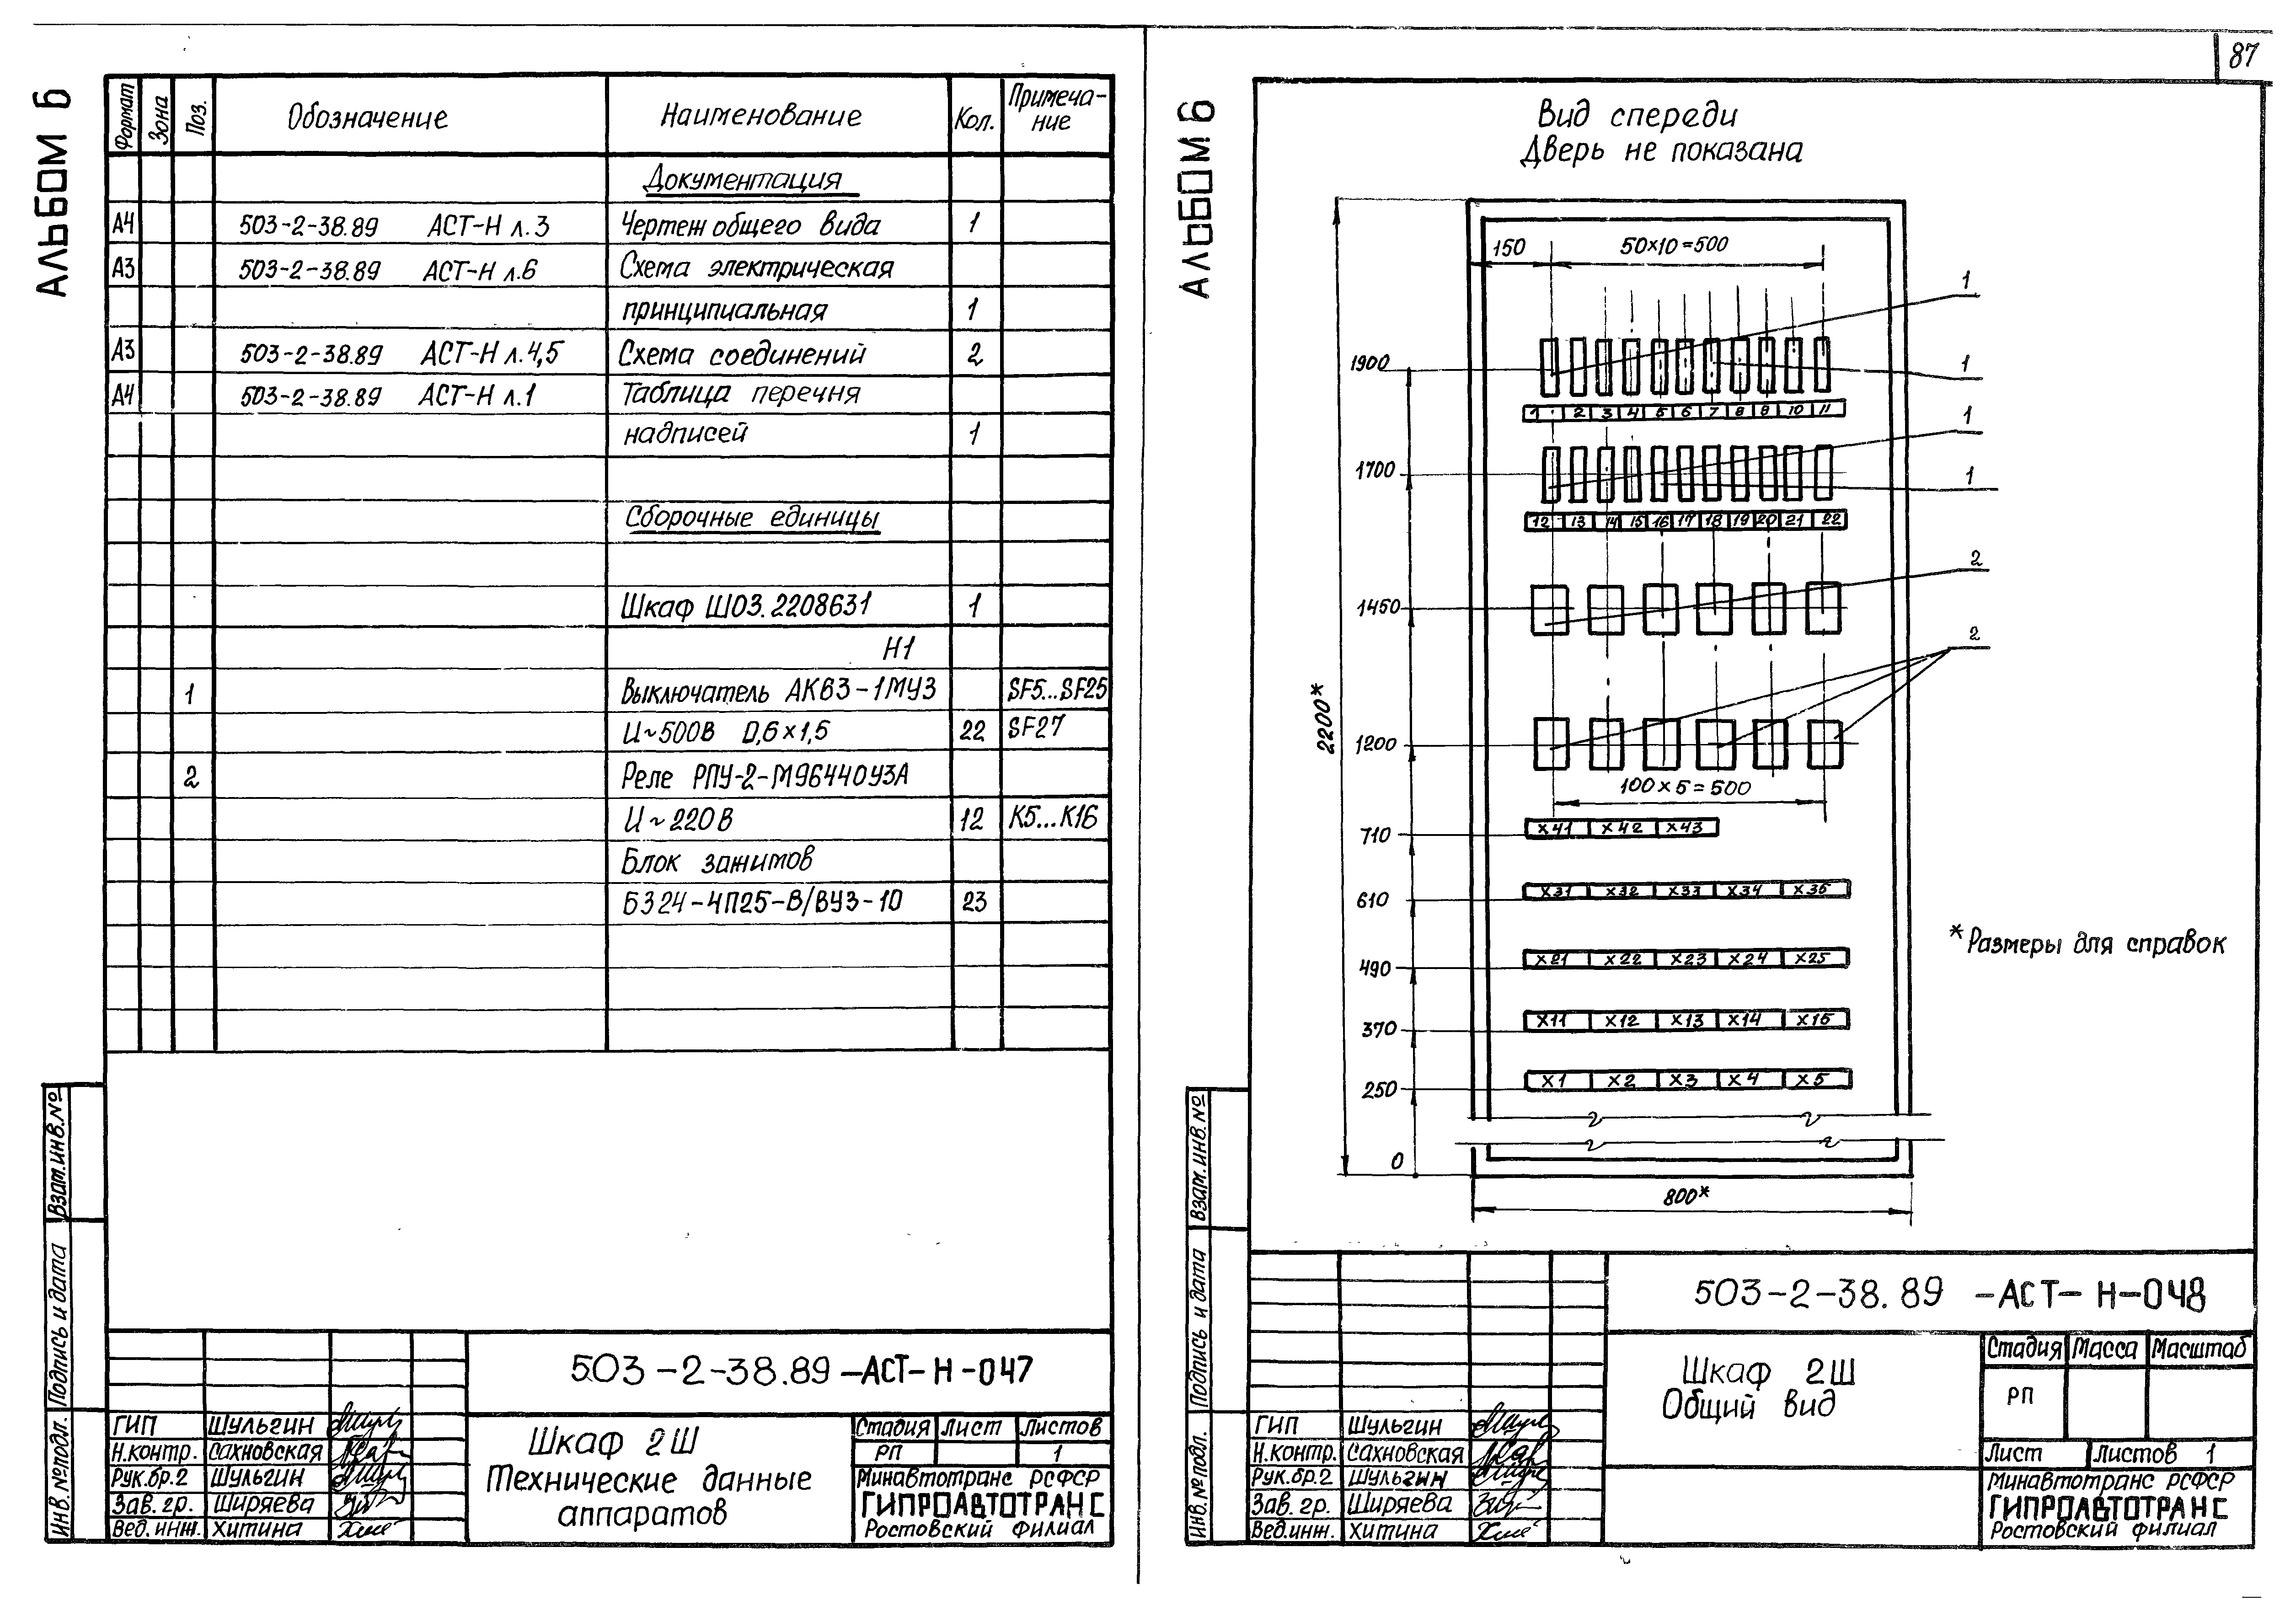 87
АЛЬБОМ 6
Формат Зона Поз. Обозначение Наименование Кол. Примеча-
ние
Документация
А4 503-2-38.89 АСТ-Н л.3 Чертеж общего вида 1
А3 503-2-38.89 АСТ-Н л.6 Схема электрическая
принципиальная 1
А3 503-2-38.89 АСТ-Н л.4,5 Схема соединений 2
А4 503-2-38.89 АСТ-Н л.1 Таблица перечня
надписей 1
Сборочные единицы
Шкаф ШОЗ.2208631 1
Н1
1 Выключатель АК63-1МУЗ SF5...SF25
U~500В 0,6×1,5 22 SF27
2 Реле РПУ-2-М96440УЗА
U~220В 12 К5...К16
Блок зажимов
БЗ24-4П25-В/ВУЗ-10 23
Взам.инв.№
Подпись и дата
Инв.№подл.
503-2-38.89-АСТ-Н-047
ГИП Шульгин
Н.контр. Сахновская
Рук.бр.2 Шульгин
Зав. гр. Ширяева
Вед.инж. Хитина
Шкаф 2Ш
Технические данные
аппаратов
Стадия Лист Листов
РП 1
Минавтотранс РСФСР
ГИПРОАВТОТРАНС
Ростовский филиал
АЛЬБОМ 6
Вид спереди
Дверь не показана
150 50×10=500
1
1900 1
1 2 3 4 5 6 7 8 9 10 11
1
1700 1
12 13 14 15 16 17 18 19 20 21 22
2
1450
2
2200*
1200
100×5=500
710 X41 X42 X43
610 X31 X32 X33 X34 X35
*Размеры для справок
490 X21 X22 X23 X24 X25
370 X11 X12 X13 X14 X15
250 X1 X2 X3 X4 X5
0
800*
Взам.инв.№
Подпись и дата
Инв.№подл.
503-2-38.89 -АСТ-Н-048
ГИП Шульгин
Н.контр. Сахновская
Рук.бр.2 Шульгин
Зав. гр. Ширяева
Вед.инж. Хитина
Шкаф 2Ш
Общий вид
Стадия Масса Масштаб
РП
Лист Листов 1
Минавтотранс РСФСР
ГИПРОАВТОТРАНС
Ростовский филиал